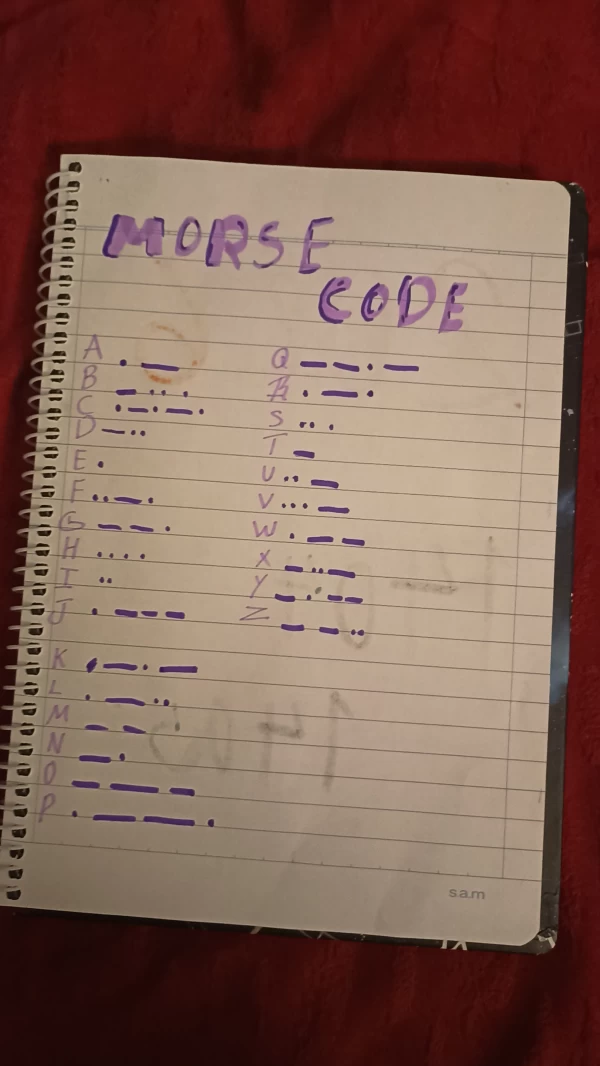 MORSE
CODE
A . —
B — . . .
C . — . — .
D — . .
E .
F . . — .
G — — .
H . . . .
I . .
J . — — —
K . — . —
L . — . .
M — —
N — .
O — — —
P . — — .
Q — — . —
R . — .
S . . .
T —
U . . —
V . . . —
W . — —
X — . . —
Y — . — —
Z — — . .
s.a.m